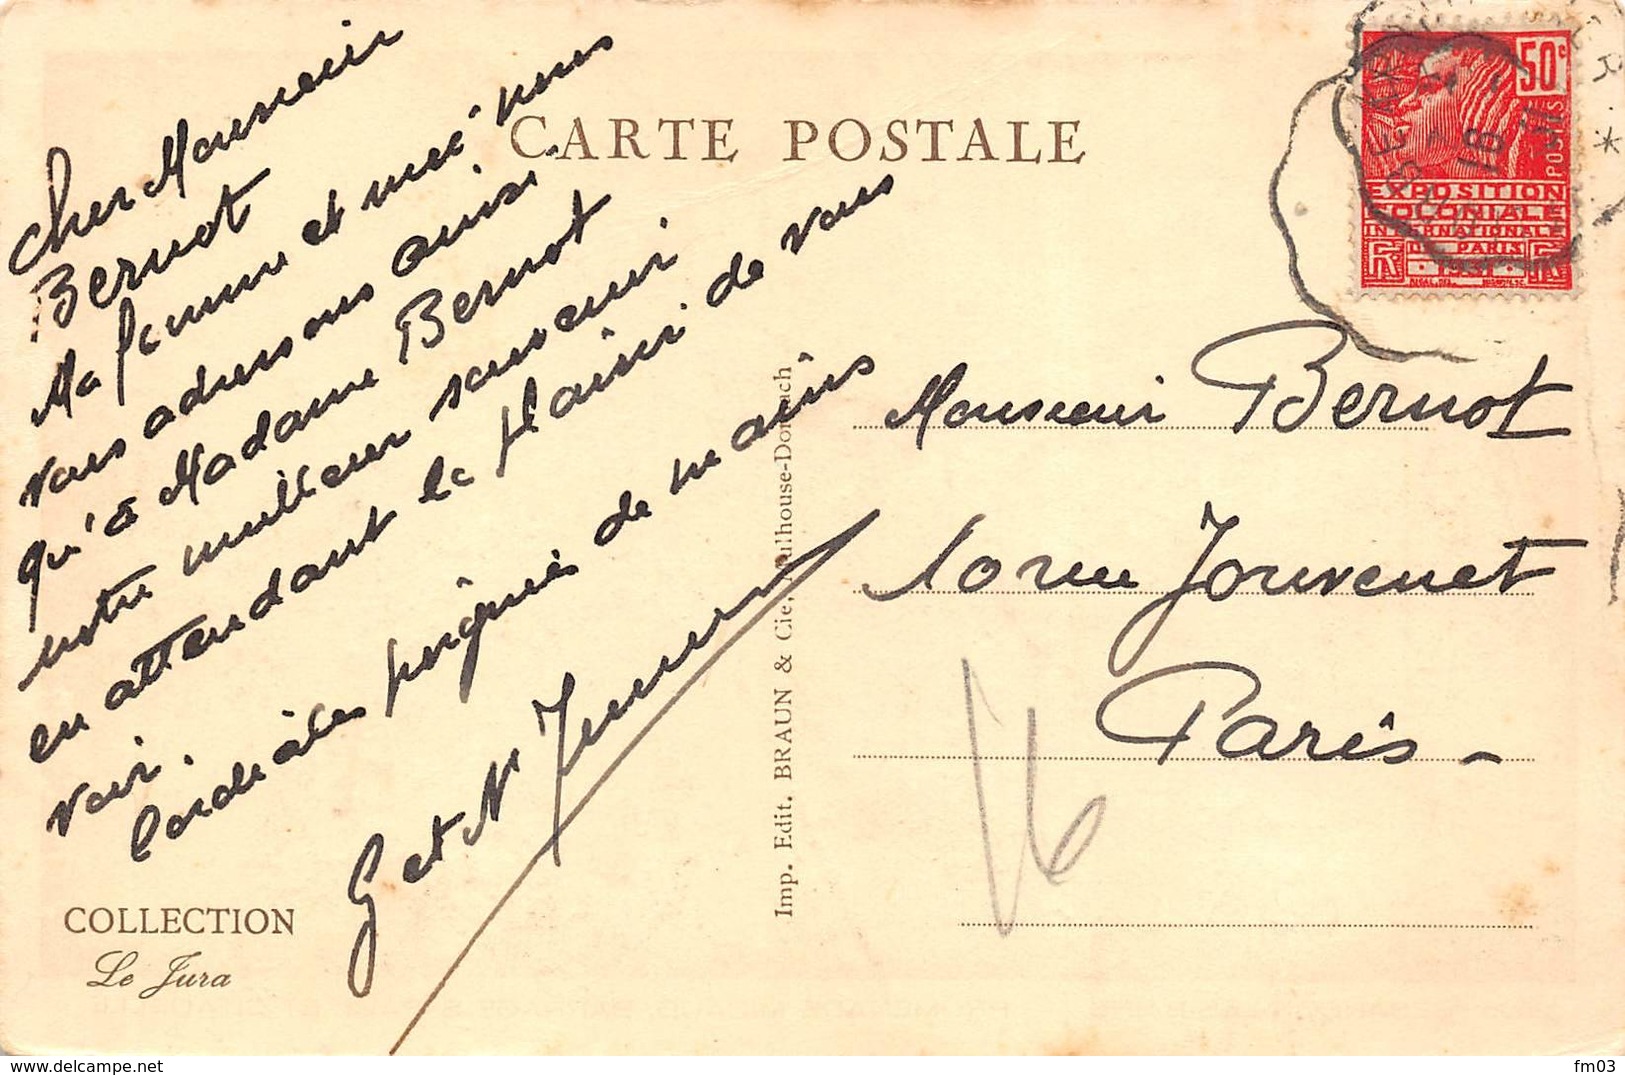 CARTE POSTALE
Cher Monsieur
Bernot
Ma femme et moi nous
vous adressons ainsi
qu'à Madame Bernot
notre meilleur souvenir
en attendant le plaisir de vous
voir.
Cordiales poignées de mains
G et
COLLECTION
Le Jura
Imp. Edit. BRAUN & Cie, Mulhouse-Dornach
50c
POSTES
EXPOSITION
COLONIALE
INTERNATIONALE
DE PARIS
RF 1931 RF
18
Monsieur Bernot
10 rue Jouvenet
Paris -
16
fm03